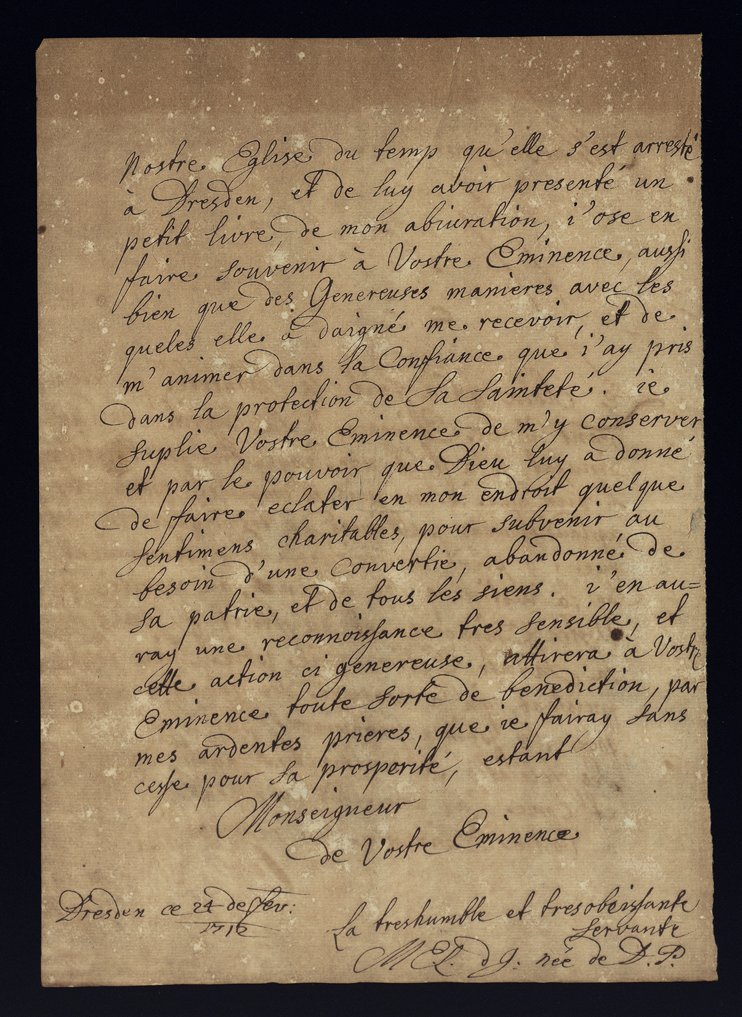 Nostre Eglise du temp qu'elle s'est arresté
à Dresden, et de luy avoir presenté un
petit livre, de mon abiuration, i'ose en
faire souvenir à Vostre Eminence, aussi
bien que des Genereuses manieres avec les
queles elle a daigné me recevoir, et de
m'animer dans la Confiance que i'ay pris
dans la protection de Sa Sainteté. ie
suplie Vostre Eminence de m'y conserver
et par le pouvoir que Dieu luy a donné
de faire eclater en mon endroit quelque
sentimens charitables, pour subvenir au
besoin d'une Convertie, abandonné de
sa patrie, et de tous les siens. i'en au=
ray une reconnoissance tres sensible, et
cette action ci genereuse, attirera à Vostre
Eminence toute sorte de benediction, par
mes ardentes prieres, que ie fairay sans
cesse pour sa prosporité, estant
Monseigneur
de Vostre Eminence
Dresden ce 24 de fev:
La treshumble et tresobeissante
1712
Servante
née de D. P.